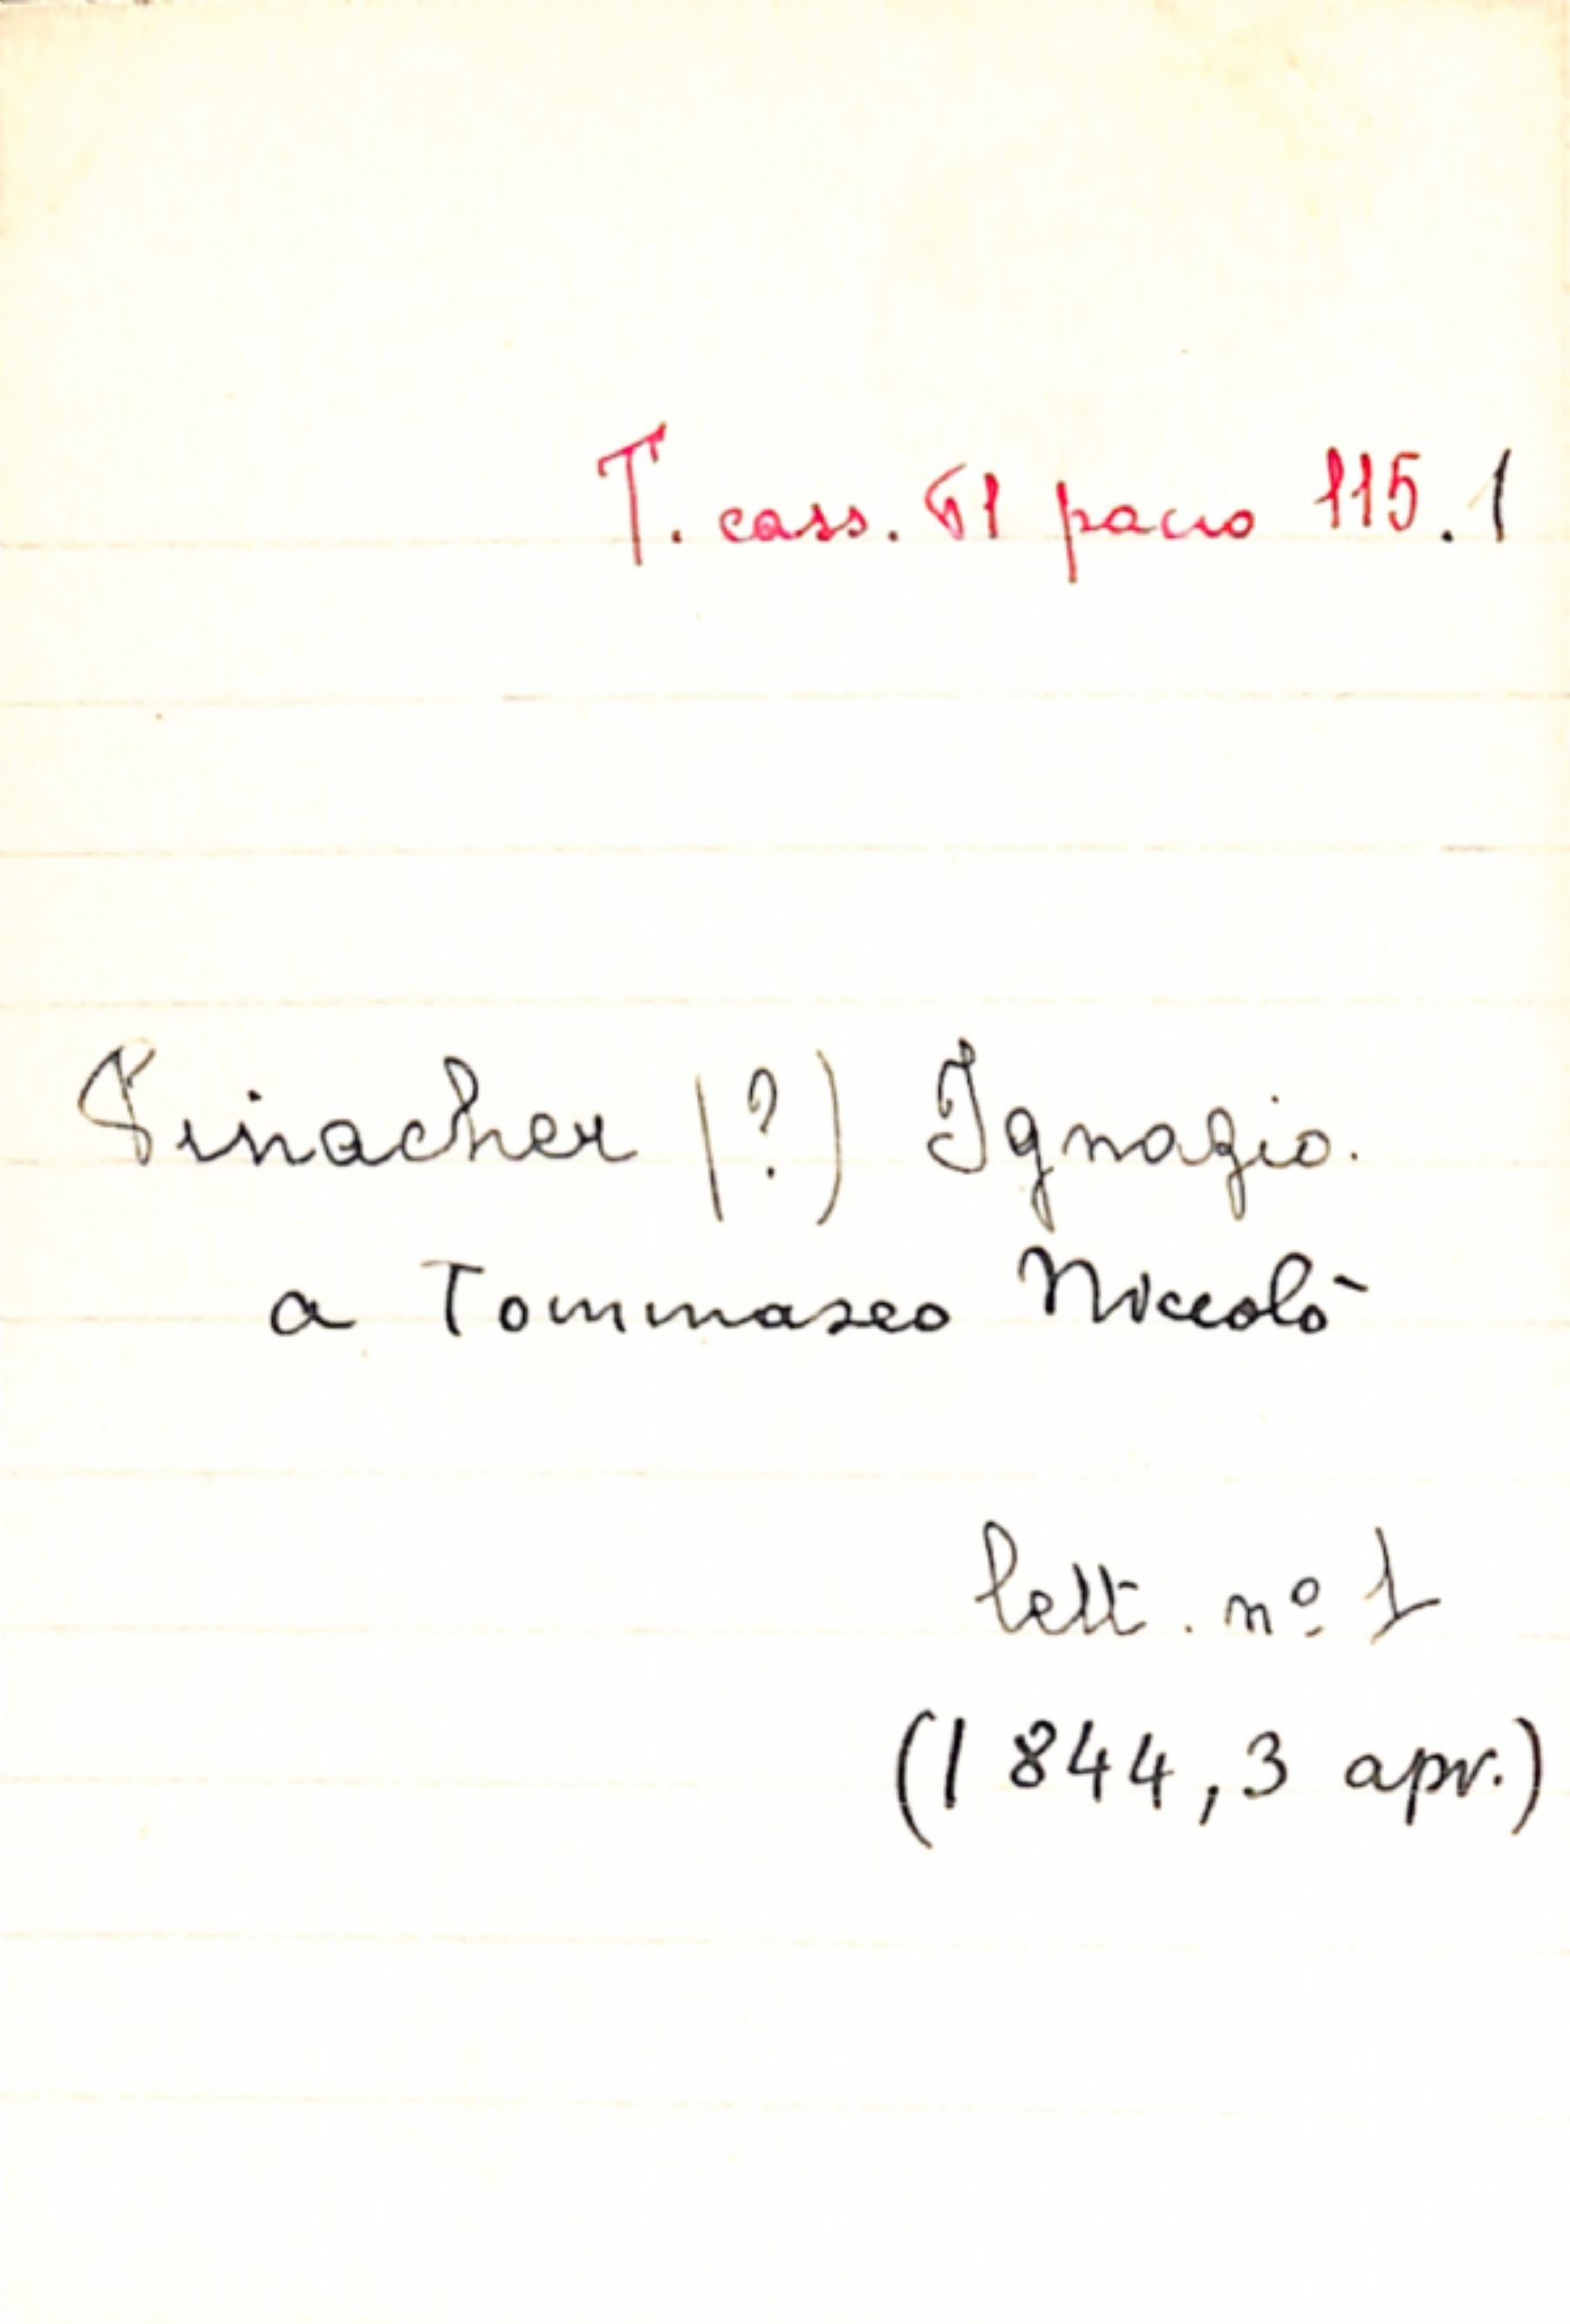 T. cass. 61 pacco 115. 1
(?) Ignazio.
a Tommaseo Niccolò
lett. nº 1
(1844, 3 apr.)